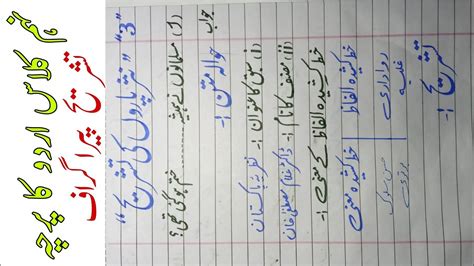 نہم کلاس اردو کا پرچہ
تشریح پیراگراف
"3" "نثر پاروں کی تشریح"
مسلمانوں نے ہمیشہ ---- ختم ہو گئی تھی؟
جواب
حوالہ متن :-
(i) سبق کا عنوان :- نظریہ پاکستان
(ii) مصنف کا نام :- ڈاکٹر غلام مصطفیٰ خان
خط کشیدہ الفاظ کے معنی :-
خط کشیدہ الفاظ خط کشیدہ معنی
رواداری حسن سلوک
غلبہ برتری
تشریح :-